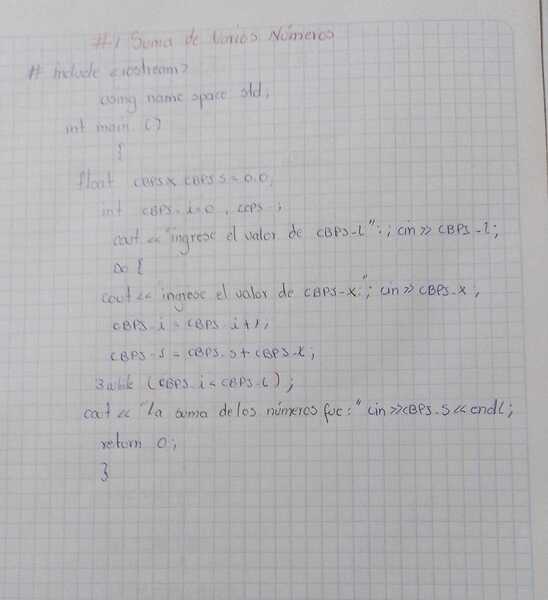 #1 Suma de Varios Números
# include <iostream>
using name space std;
int main ()
{
float CBPSx CBPS S = 0.0,
int CBPS_i=0,
cout << "ingrese el valor de CBPS-L":; cin >> CBPS-l;
Do {
cout << ingrese el valor de CBPS-X:"; cin >> CBPS_X;
CBPS_i = CBPS_i+1,
CBPS-S = CBPS_S + CBPS-X;
}while (CBPS_i < CBPS-L);
cout << "La suma de los números fue:" cin >> CBPS_S << endl;
return 0;
}